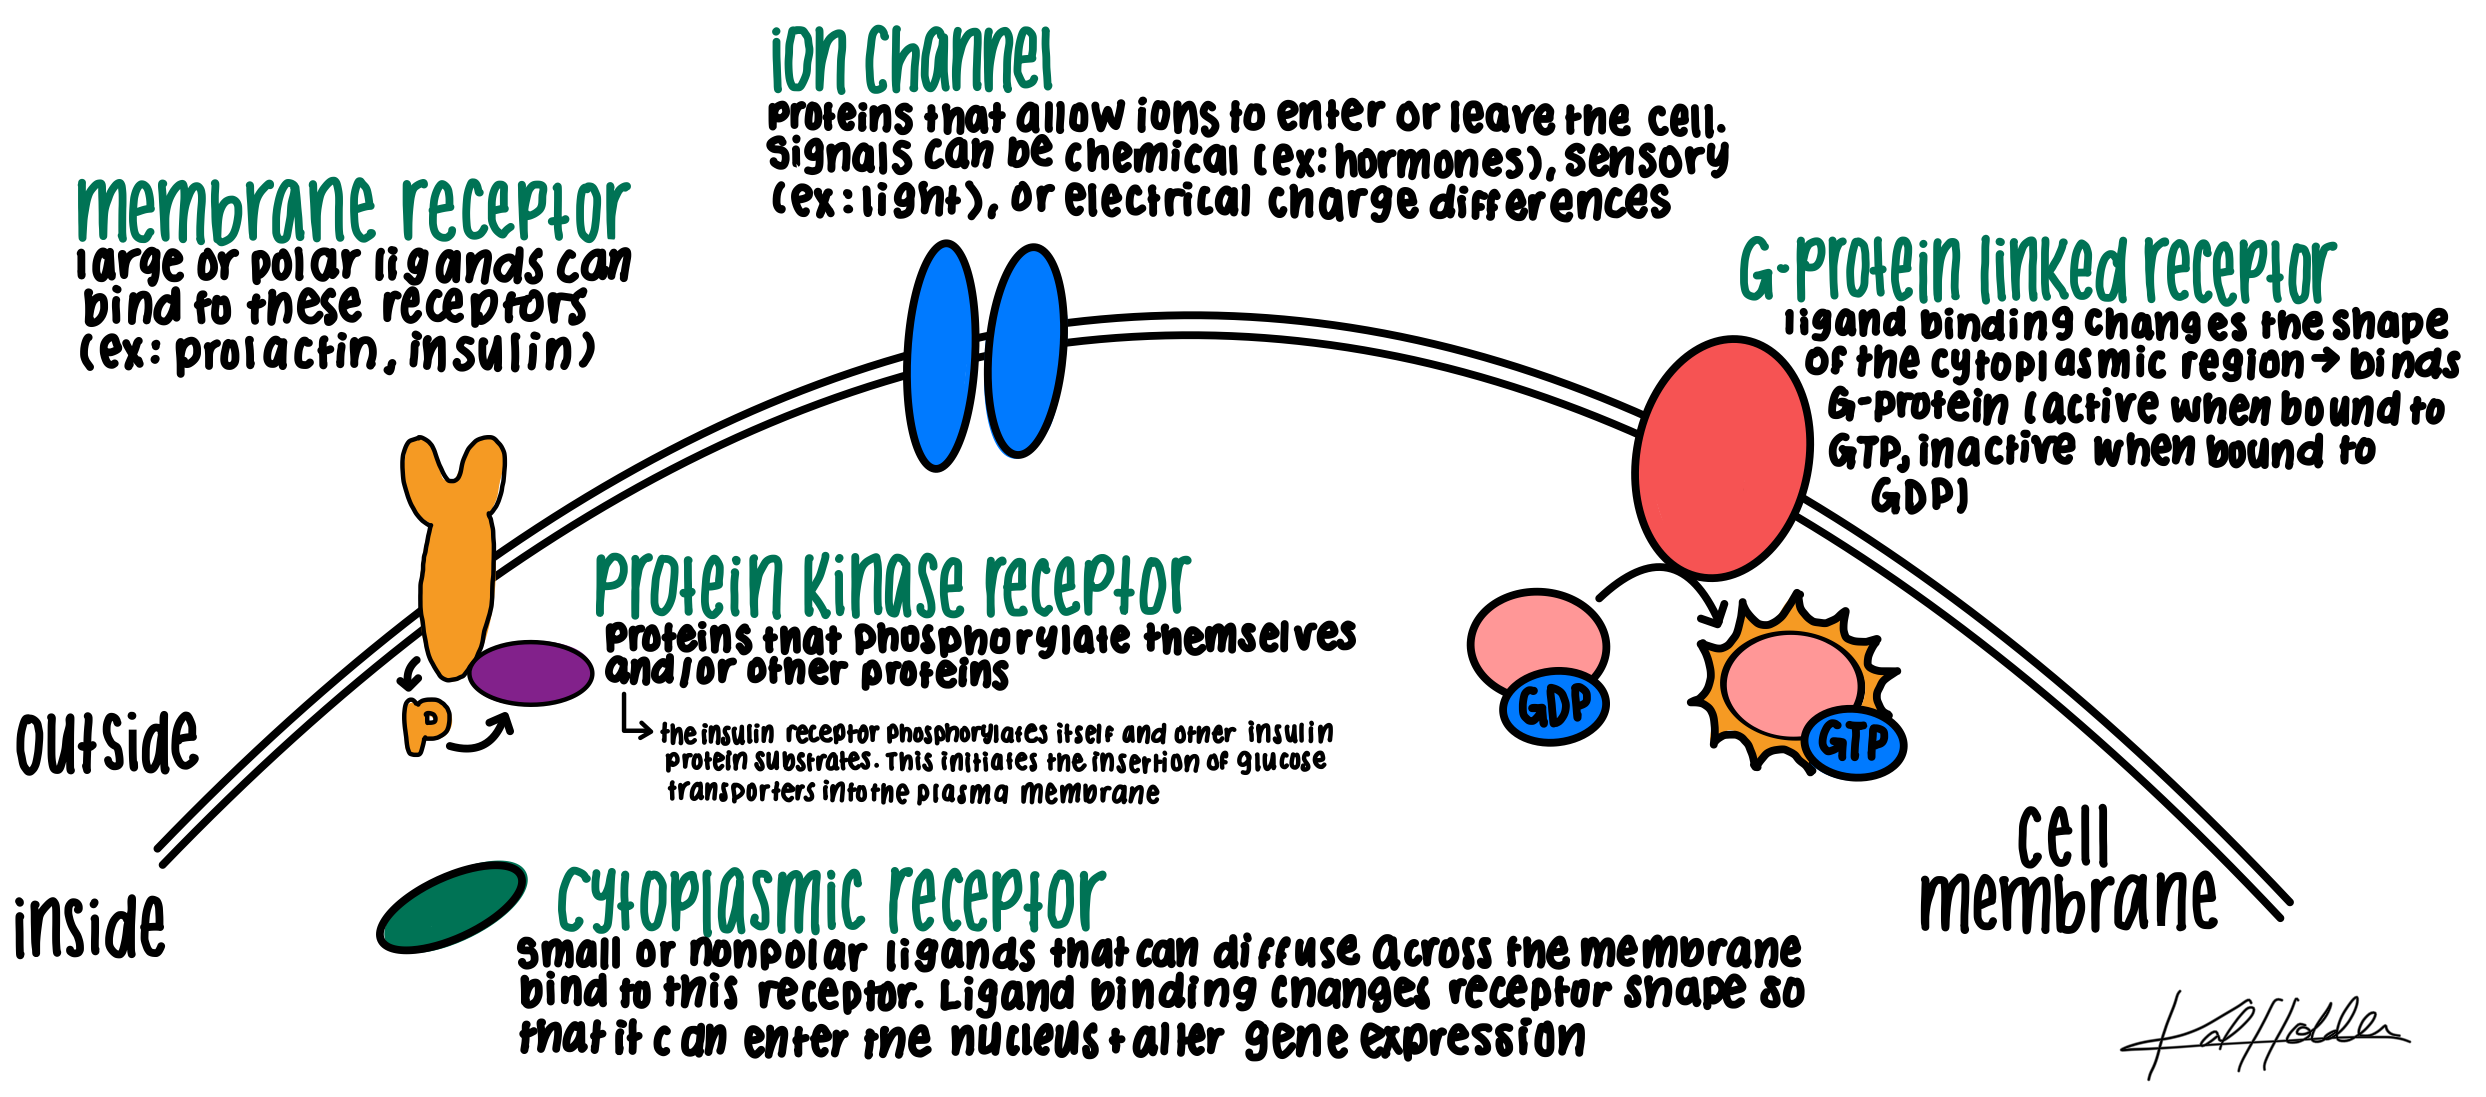 ion channel
proteins that allow ions to enter or leave the cell.
Signals can be chemical (ex: hormones), sensory
(ex: light), or electrical charge differences
membrane receptor
large or polar ligands can
bind to these receptors
(ex: prolactin, insulin)
G-protein linked receptor
ligand binding changes the shape
of the cytoplasmic region → binds
G-protein (active when bound to
GTP, inactive when bound to
GDP)
protein kinase receptor
proteins that phosphorylate themselves
and/or other proteins
the insulin receptor phosphorylates itself and other insulin
protein substrates. This initiates the insertion of glucose
transporters into the plasma membrane
P
GDP
GTP
outside
inside
cell
membrane
cytoplasmic receptor
small or nonpolar ligands that can diffuse across the membrane
bind to this receptor. Ligand binding changes receptor shape so
that it can enter the nucleus + alter gene expression
Kal Holder